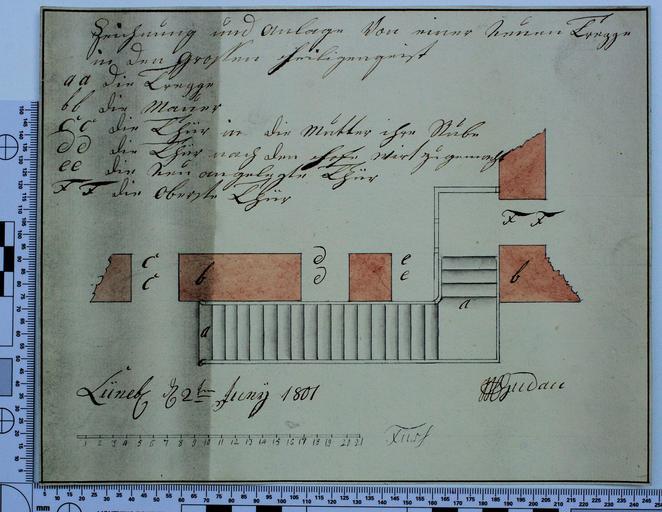 Zeichnung und Anlage Von einer Neuen Treppe
in den Grossen Heiligengeist
aa die Treppe
bb die Mauer
CC die Thür in die Mutter ihre Stube
dd die Thür nach den Hofe wirt zugemacht
ee die Neu angelegte Thür
FF die Oberste Thür
F F
c d e b
c d e b
a
a
Lüneb. d 2ten Juny 1801
1 2 3 4 5 6 7 8 9 10 11 12 13 14 15 16 17 18 19 20 21
Fuss
mm